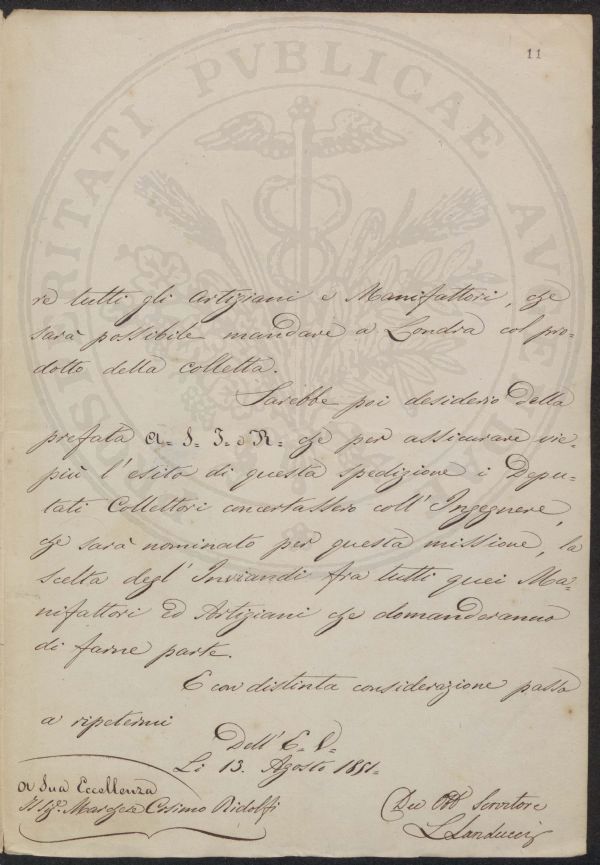 11
re tutti gli Artigiani e Manifattori, che
sarà possibile mandare a Londra col pro=
dotto della colletta.
Sarebbe poi desiderio della
prefata A. S. I. e R. che per assicurare vie=
più l'esito di questa spedizione i Depu=
tati Collettori concertassero coll'Ingegnere,
che sarà nominato per questa missione, la
scelta degl'Inviandi fra tutti quei Ma=
nifattori ed Artigiani che domanderanno
di farne parte.
E con distinta considerazione passo
a ripetermi
Dell'E. V.
Li 13. Agosto 1851.
A Sua Eccellenza
Il Sig.r Marchese Cosimo Ridolfi
Dev Obb Servitore
L Landucci